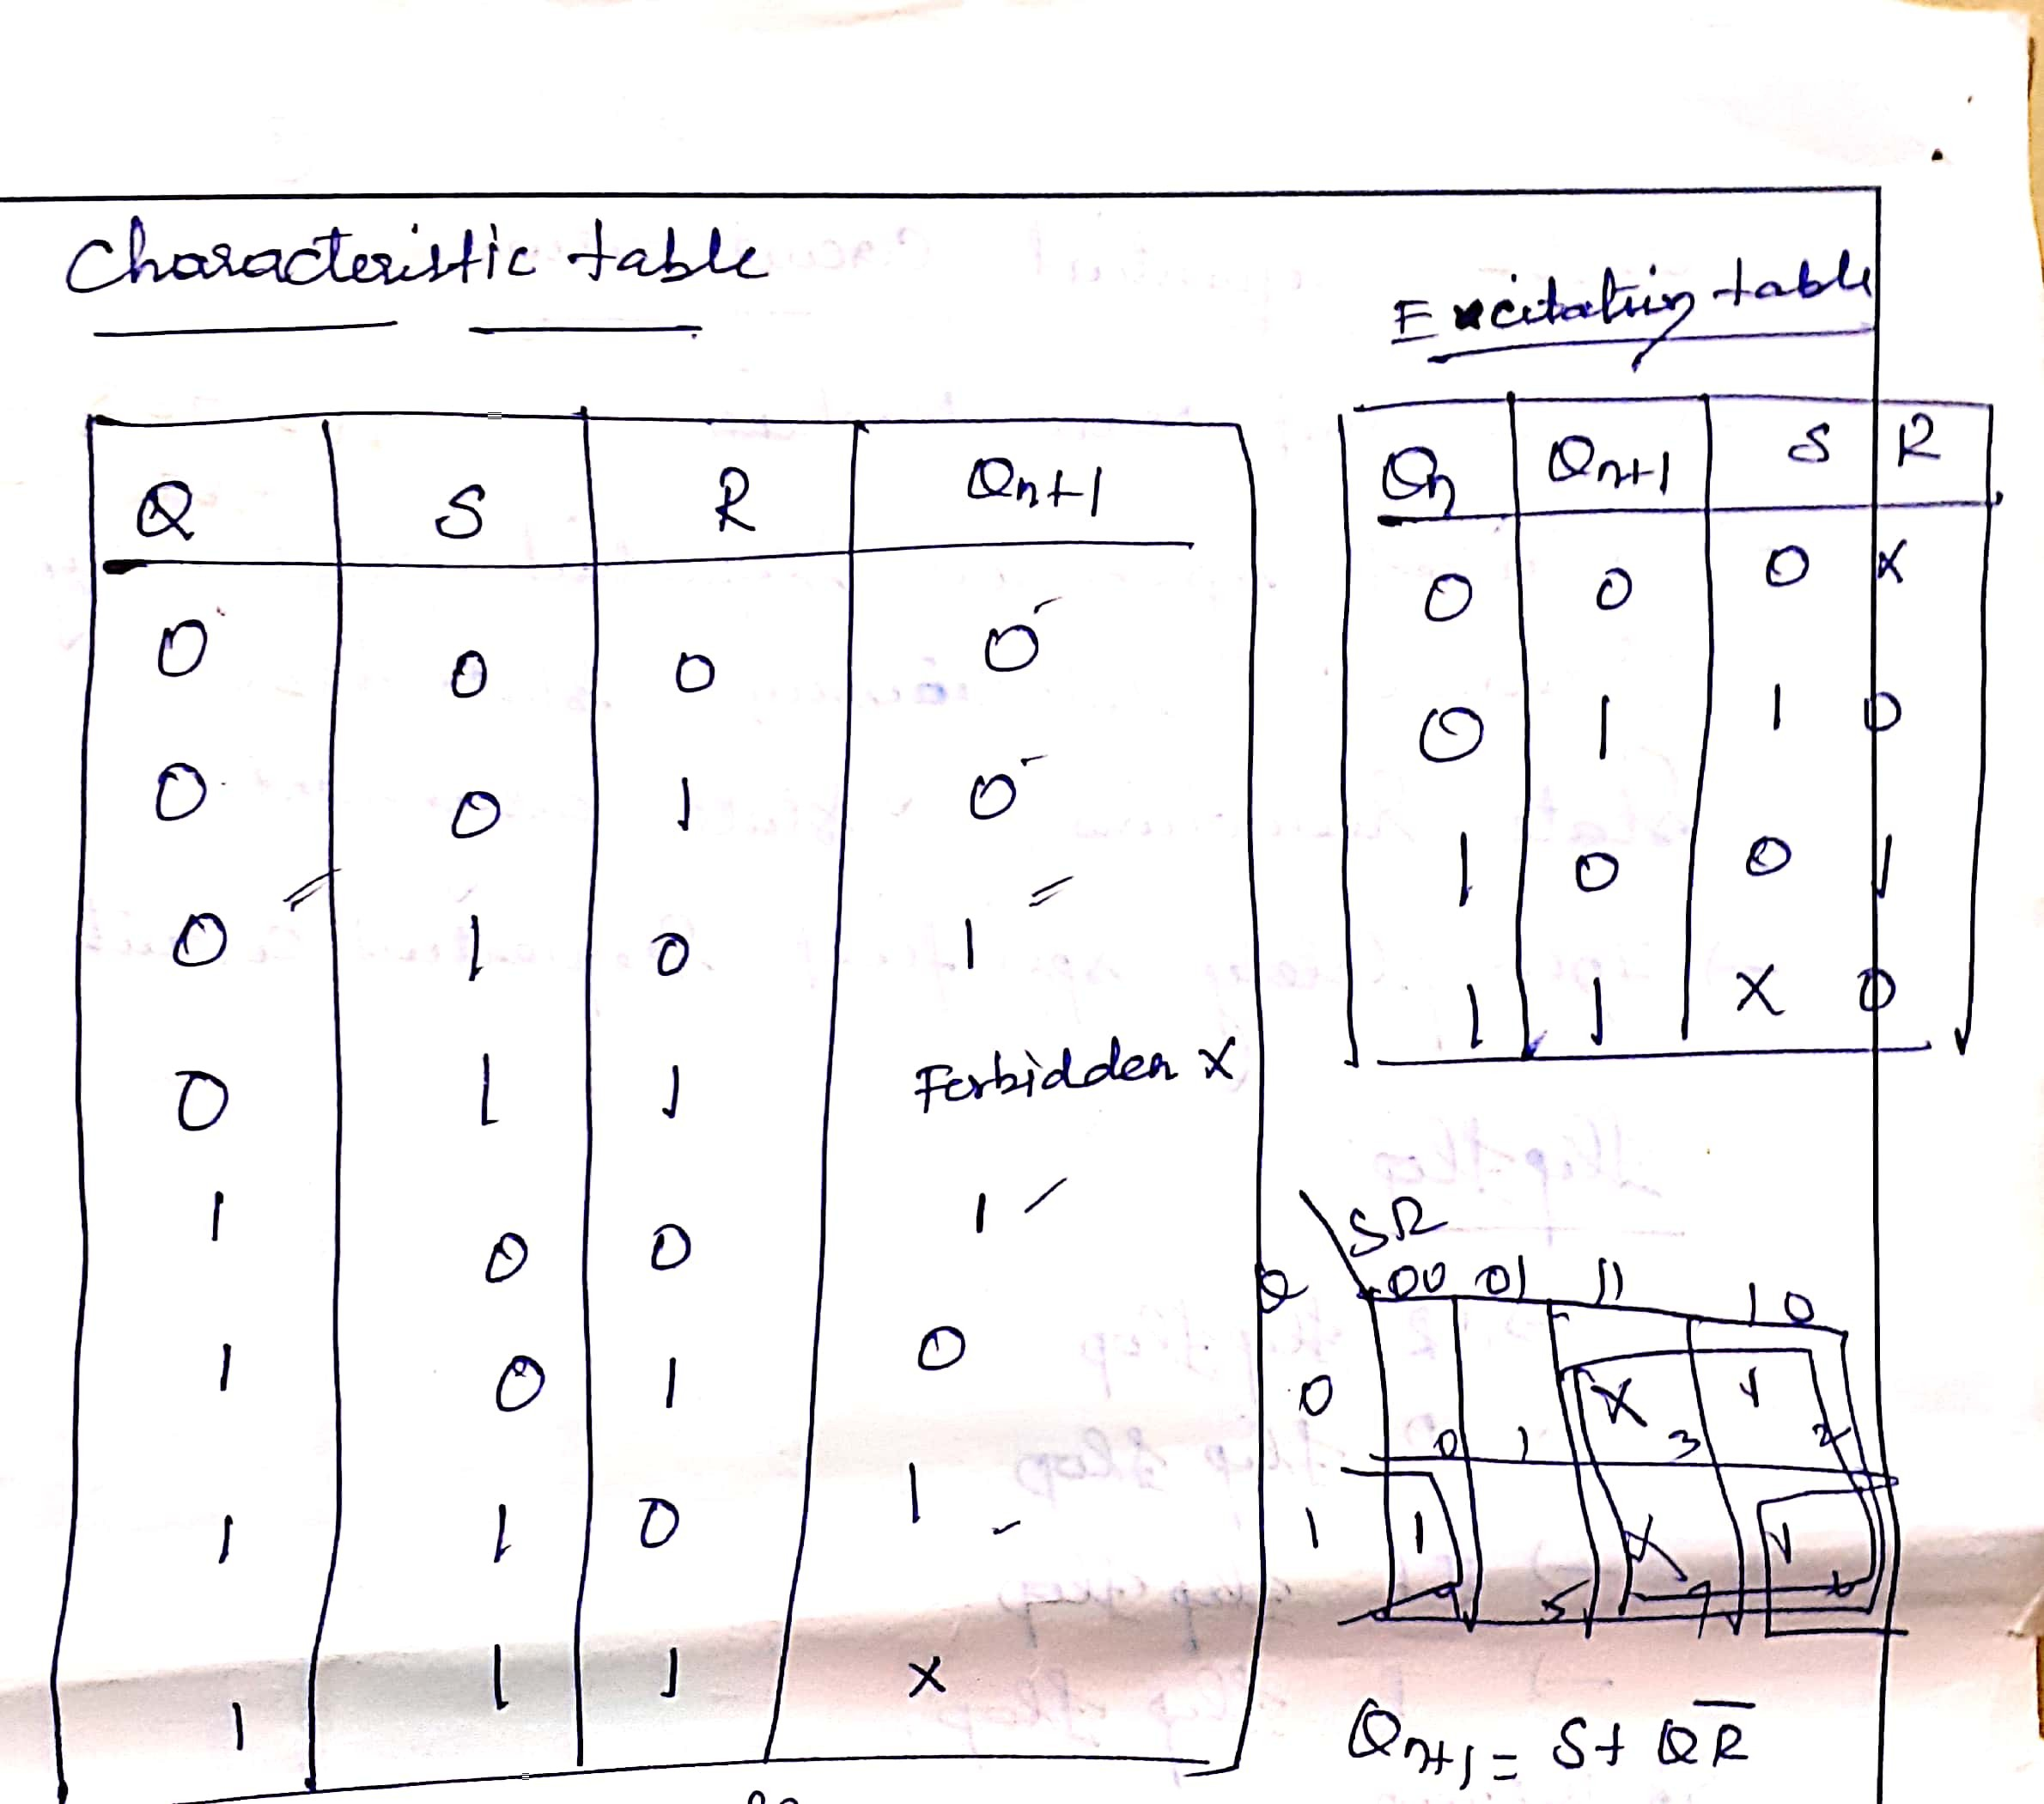 Characteristic table
Q S R Qn+1
0 0 0 0
0 0 1 0
0 1 0 1
0 1 1 Forbidden X
1 0 0 1
1 0 1 0
1 1 0 1
1 1 1 X
Excitation table
Qn Qn+1 S R
0 0 0 X
0 1 1 0
1 0 0 1
1 1 X 0
SR
Q 00 01 11 10
0 X 1
0 1 3 2
1 1 X 1
5 7 6
Qn+1 = S+ QR̅